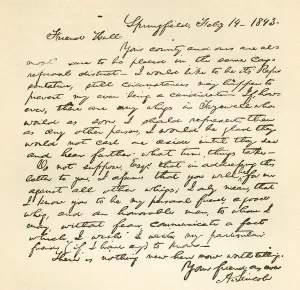 Springfield, Feby 14 - 1843.
Friend Hull
Your county and ours are al
most sure to be placed in the same Con
gressional district - I would like to be its Repre
sentative; still circumstances may happen to
prevent my even being a candidate - If, how
ever, there are any whigs in Tazewell who
would as soon I should represent them
as any other person, I would be glad they
would not cast me aside until they see
and hear farther what turn things take.
Do not suppose, Esqr. that in addressing this
letter to you, I assume that you will be for me
against all other whigs; I only mean, that
I know you to be my personal friend, a good
whig, and an honorable man, to whom I
may, without fear, communicate a fact
which I wish my particular
friends (if I have any) to know -
There is nothing new here now worth telling.
Your friend, as ever
A. Lincoln